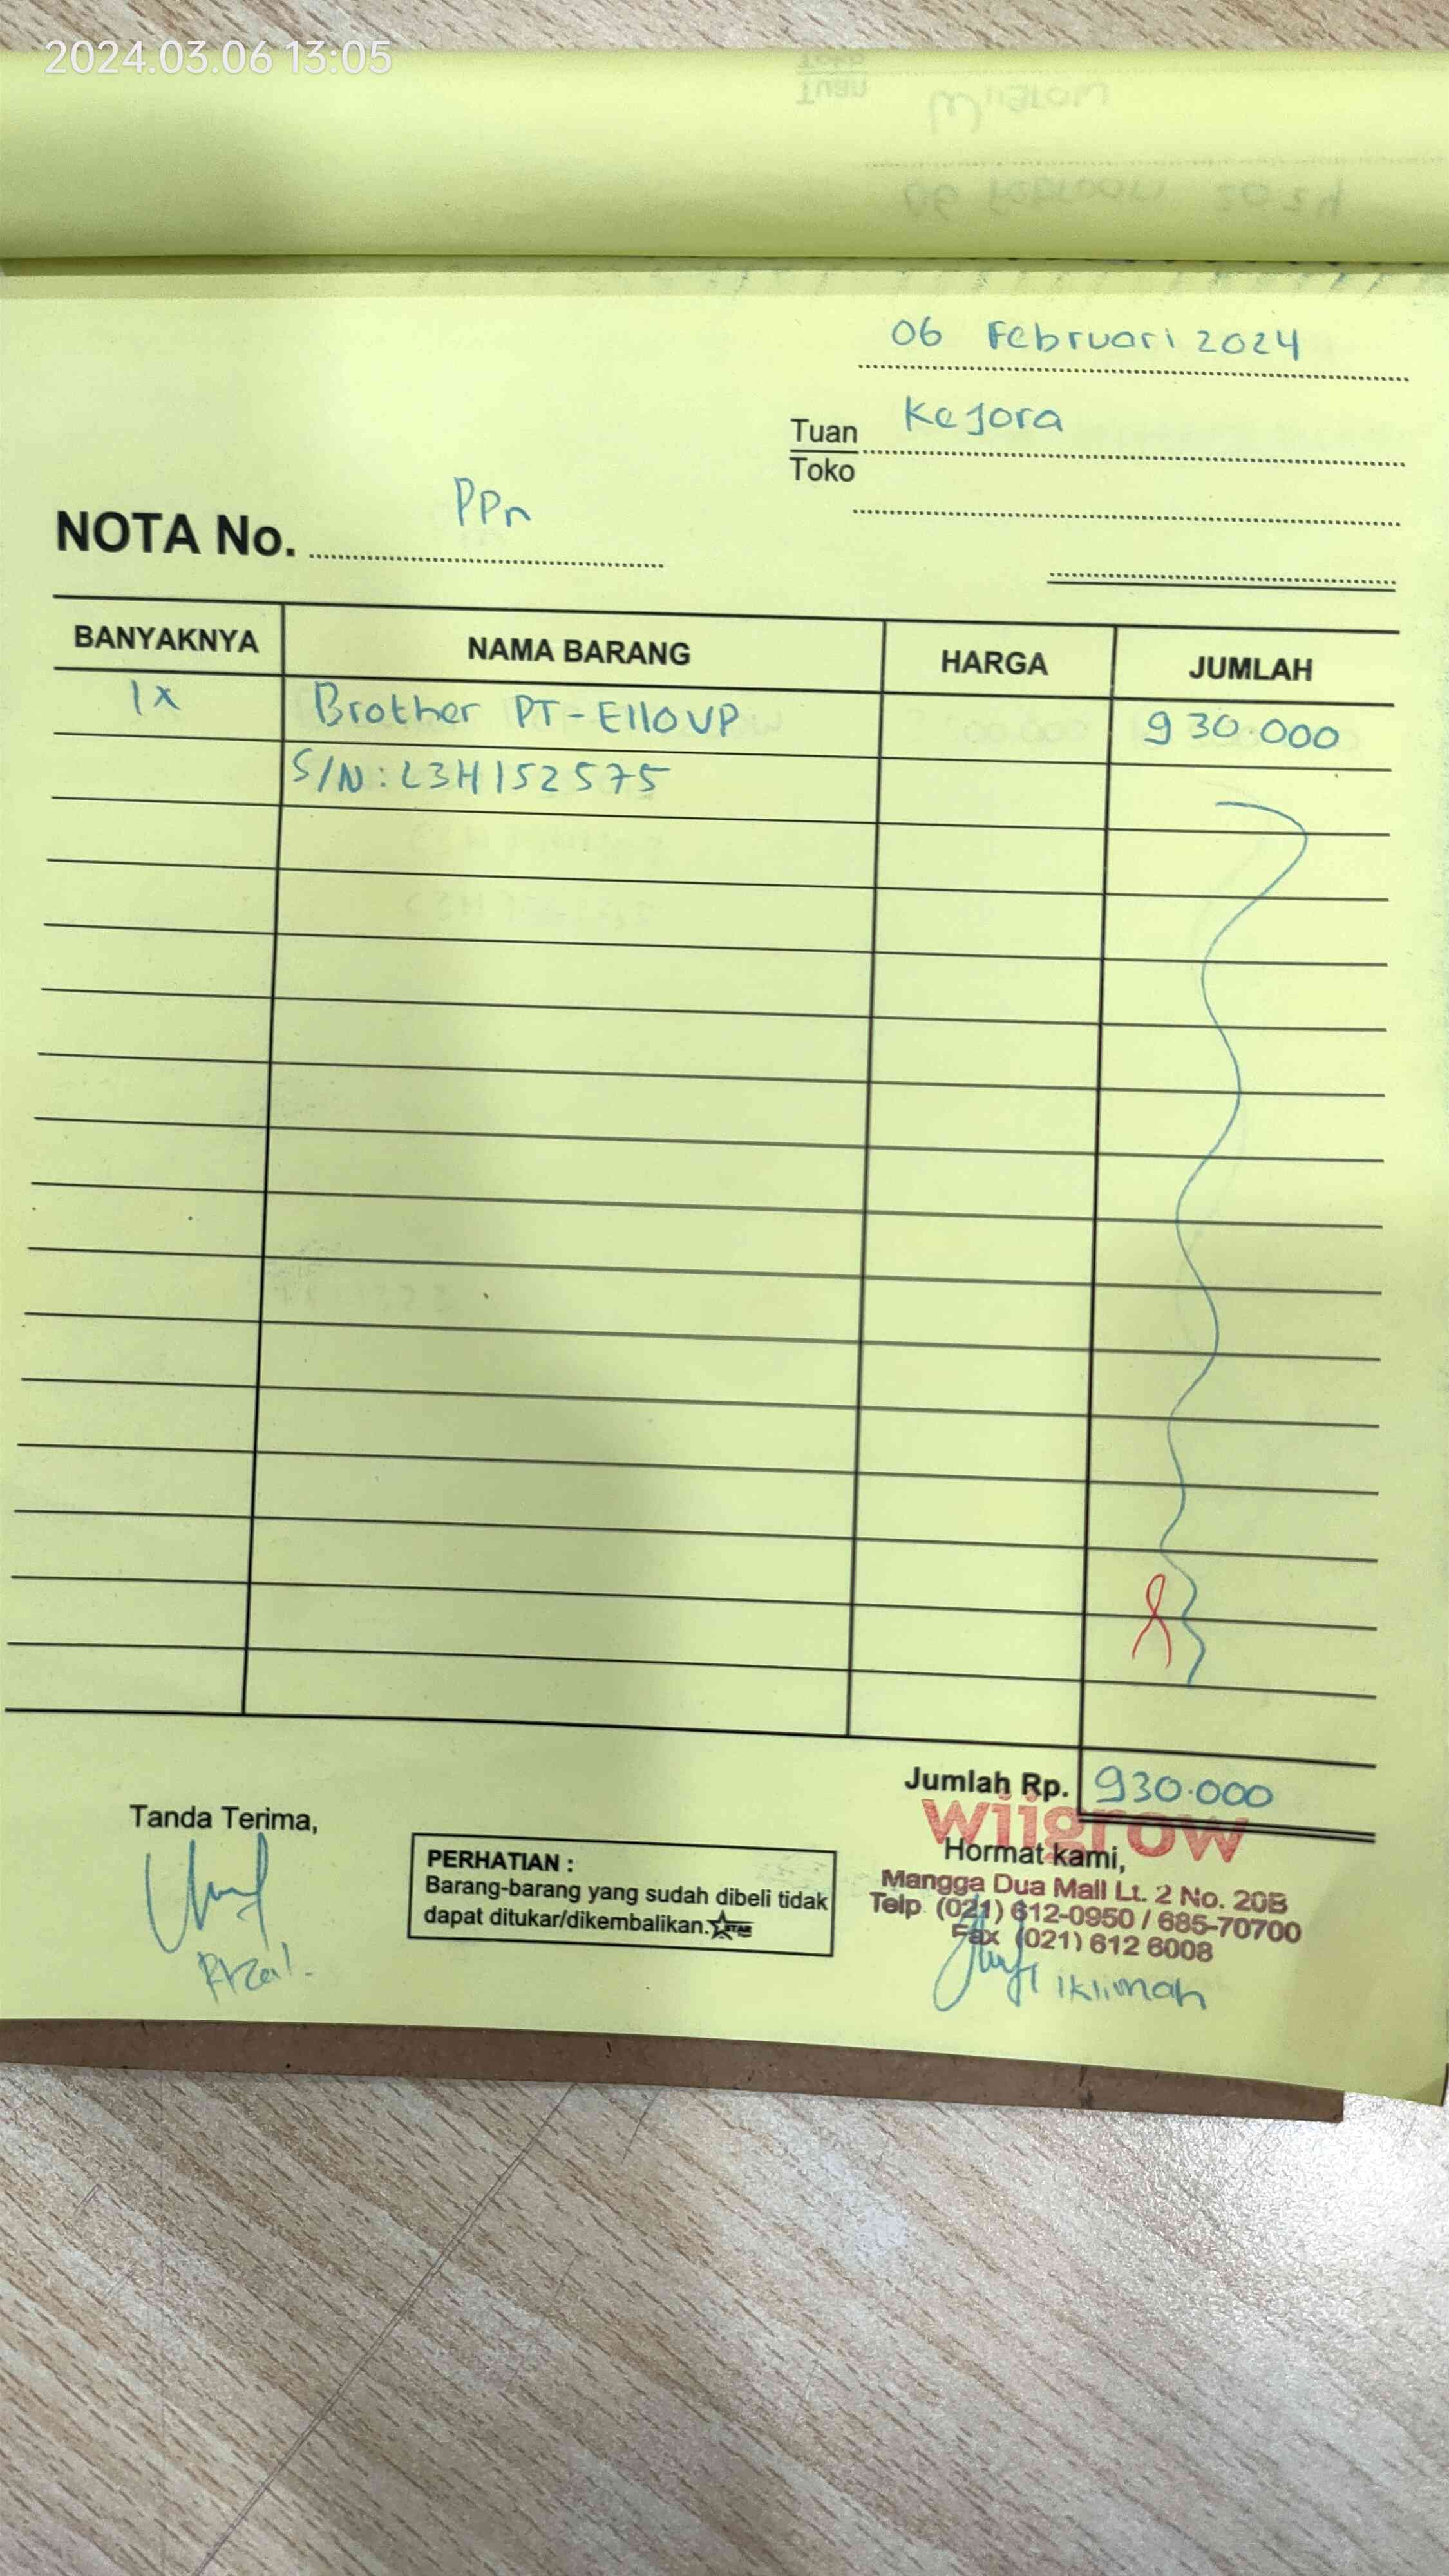 2024.03.06 13:05
06 Februari 2024
Tuan Kejora
Toko
NOTA No. PPn
BANYAKNYA NAMA BARANG HARGA JUMLAH
1x Brother PT-E110VP 930.000
S/N: L3H152575
Jumlah Rp. 930.000
wiigrow
Tanda Terima,
Hormat kami,
PERHATIAN :
Barang-barang yang sudah dibeli tidak
dapat ditukar/dikembalikan.
STAR
Mangga Dua Mall Lt. 2 No. 20B
Telp. (021) 612-0950 / 685-70700
Fax (021) 612 6008
Iklimah